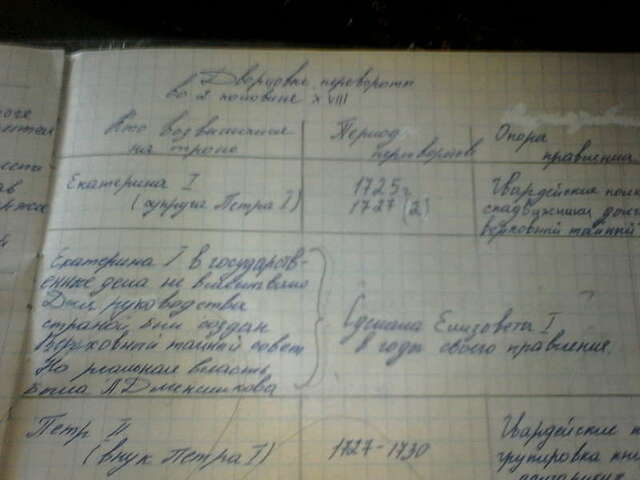 Дворцовые перевороты
во 2 половине XVIII
Кто возвысился
на троне
Период
переворотов
Опора
правления
Екатерина I
(супруга Петра I)
1725г
1727 (2)
Гвардейские пол
сподвижники
верховный тайный
Екатерина I в государств-
енные дела не
Для руководства
страной был создан
Верховный тайный совет
Но реальная власть
была А.Д Меншикова
Сделала Елизовета I
в годы своего правления.
Петр II
(внук Петра I)
1727-1730
Гвардейские п
групировка кня